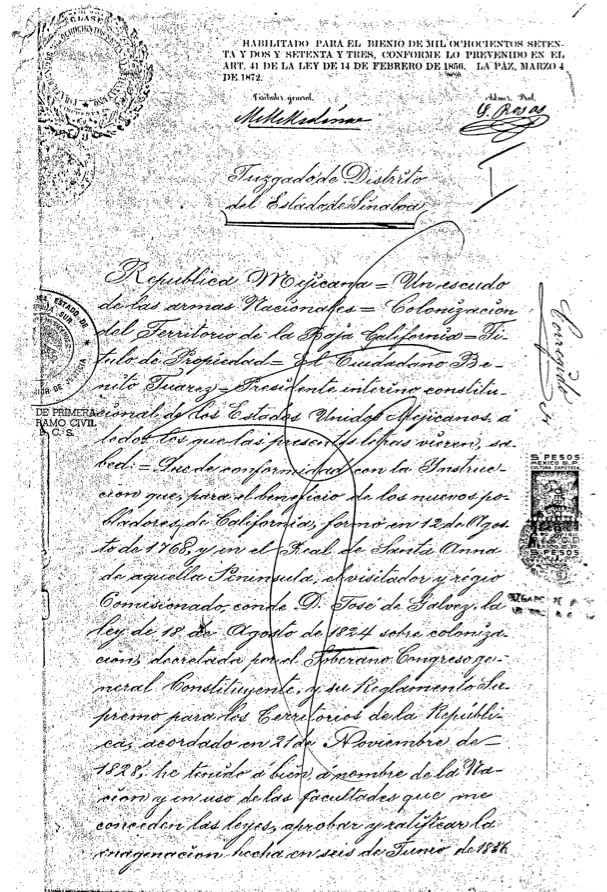 HABILITADO PARA EL BIENIO DE MIL OCHOCIENTOS SETEN-
TA Y DOS Y SETENTA Y TRES, CONFORME LO PREVENIDO EN EL
ART. 41 DE LA LEY DE 14 DE FEBRERO DE 1856. LA PAZ, MARZO 4
DE 1872.
Visitador general.
G. Rosas
Juzgado de Distrito
del Estado de Sinaloa
Republica Mejicana = Un escudo
de las armas Nacionales = Colonizacion
del Territorio de la Baja California = Tí-
tulo de Propiedad = El Ciudadano Be-
nito Juarez = Presidente interino constitu-
cional de los Estados Unidos Mejicanos, a
todos los que las presentes letras vieren, sa-
bed: = Que de conformidad con la Instruc-
cion que, para el beneficio de los nuevos po-
bladores, de California, formó en 12 de Agos-
to de 1768, y en el Real de Santa Anna
de aquella Península, el visitador y régio
Comisionado, conde D. José de Galvez; la
ley de 18 de Agosto de 1824 sobre coloniza-
cion, decretada por el Soberano Congreso ge-
neral Constituyente, y su Reglamento Su-
premo para los Territorios de la Repúbli-
ca, acordado en 21 de Noviembre de
1828, he tenido á bien, á nombre de la Na-
cion y en uso de las facultades que me
conceden las leyes, aprobar y ratificar la
enagenacion hecha en seis de Junio de 1856
Corregido
DE PRIMERA
RAMO CIVIL
B. C. S.
5 PESOS
MEXICO D.F.
CULTURA ZAPOTECA
5 PESOS